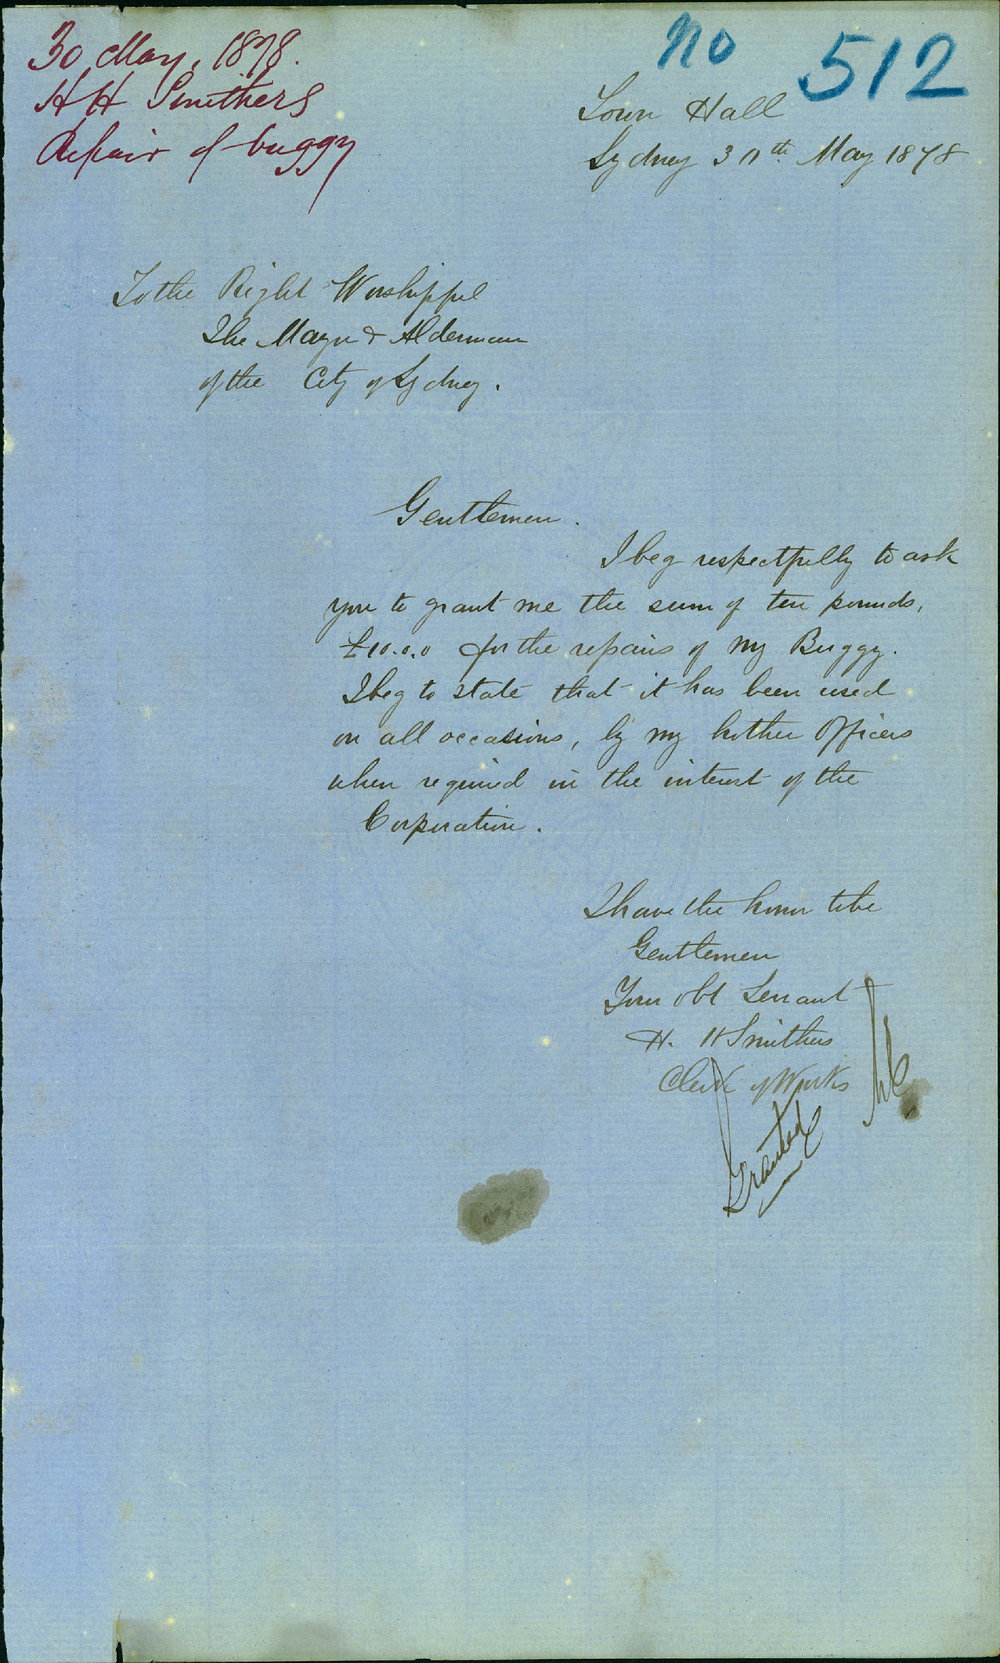 30 May, 1878.
H H Smithers
Repair of buggy
No 512
Town Hall
Sydney 30th May 1878
To the Right Worshipful
The Mayor & Aldermen
of the City of Sydney.
Gentlemen.
I beg respectfully to ask
you to grant me the sum of ten pounds,
£10.0.0 for the repairs of my Buggy.
I beg to state that it has been used
on all occasions, by my brother Officers
when required in the interest of the
Corporation.
I have the honor to be
Gentlemen
Your obt Servant
H. H Smithers
Clerk of Works
Granted